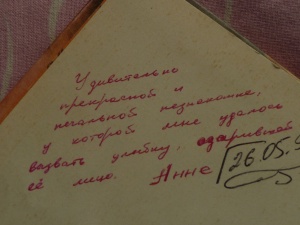 Удивительно
прекрасной и
печальной незнакомке,
у которой мне удалось
вызвать улыбку, озарившей
её лицо. Анне
26.05.